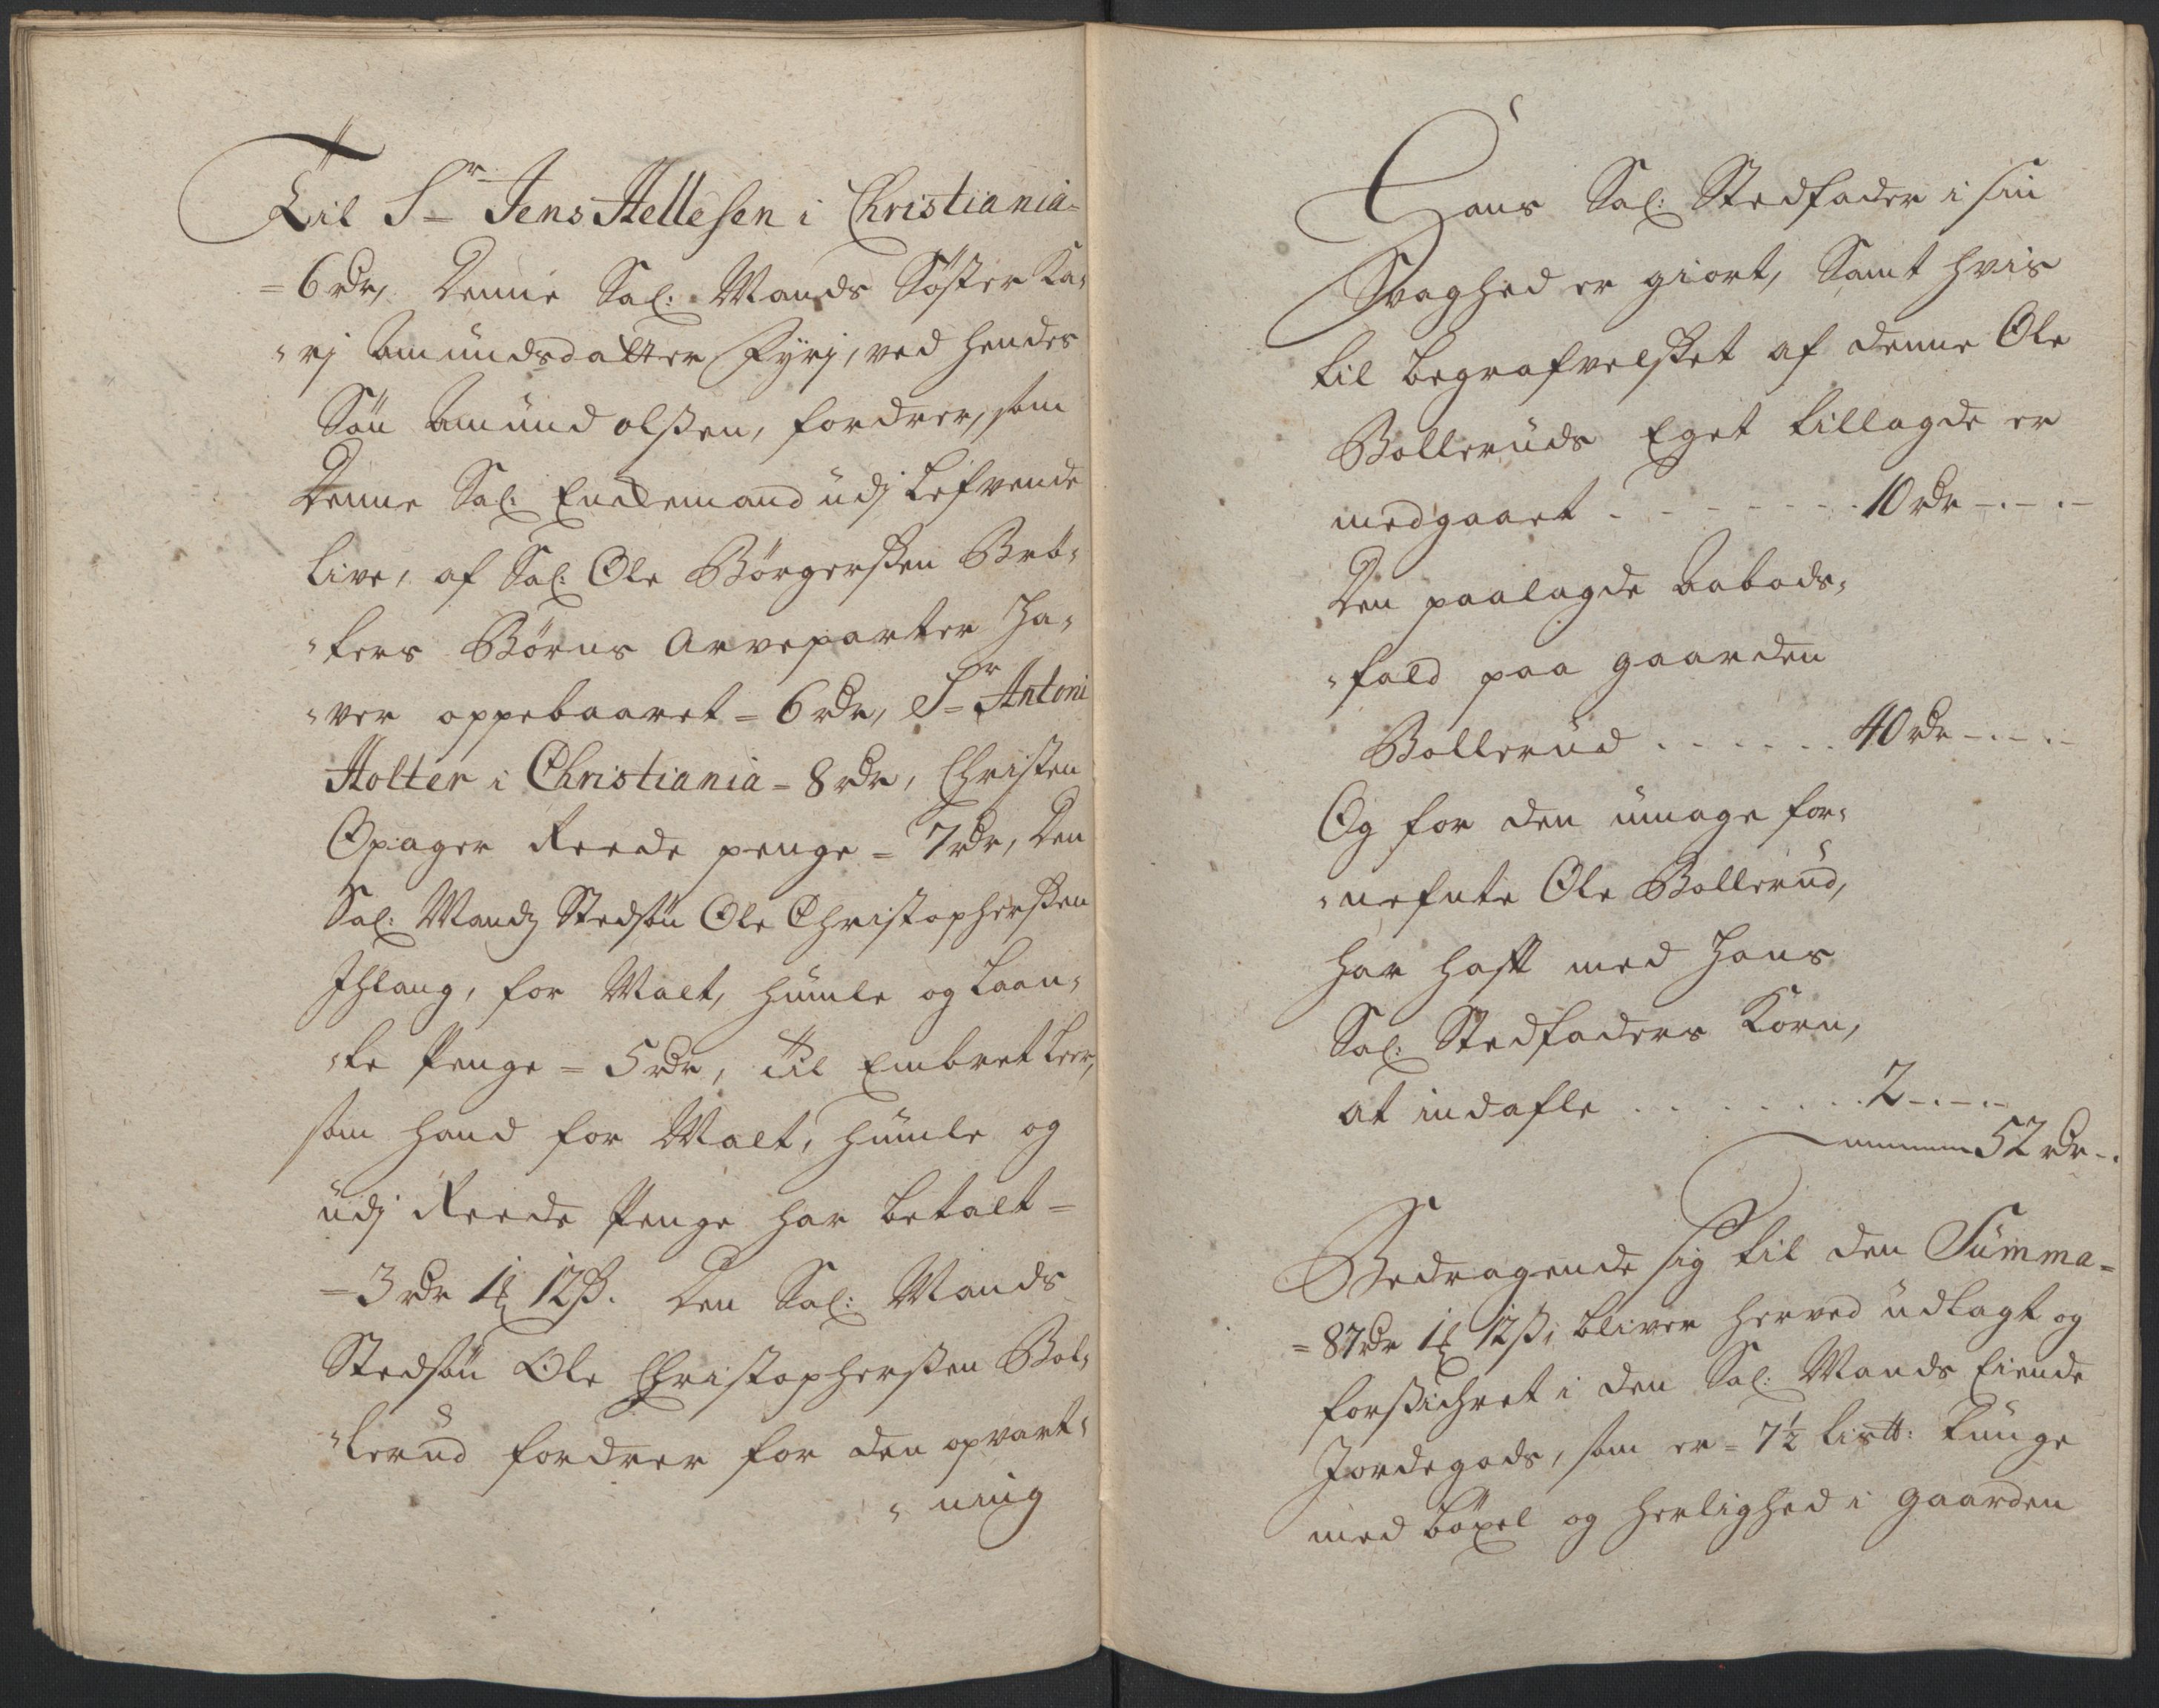 Til Sr Jens Hellesen i Christiania=
=6 rdr, Denne Sal: Mands Søster Ka,
,rj Amundsdatter Fyrj, ved hendes
Søn Amund olßen, fordrer, som
Denne Sal: Enckemand udj Lefvende
Live, af Sal: Ole Børgerßen Brö,
,ters Børns Arveparter Ha,
,ver oppebaaret = 6 rdr, Sr Antoni
Holter i Christiania = 8 rdr, Christen
Opager Reede penge = 7 rdr, Den
Sal: Mandz Stedsøn Ole Christopherßen
Ihlang, for Malt, Humle og Laan,
,te Penge = 5 rdr, til Embret Leer,
som hand for Malt, Humle og
udj Reede Penge har betalt =
=3 rdr 1 ꝑ 12 ß. Den Sal: Mands
Stedsøn Ole Christopherßen Bol,
,lerud fordrer for den opvart,
,ning
Hans Sal: Stedfader i sin
Svaghed er giort, Samt hvis
til begrafvelset af denne Ole
Bolleruds Eget tillagde er
medgaaet - - - - - - - 10 rdr -.-.-
Den paalagde Aabods,
,fald paa gaarden
Bollerud . . . . . . 40 rdr -.-.-
Og for den umage for,
,nefnte Ole Bollerud,
har haft med Hans
Sal: Stedfaders Korn,
at indafle . . . . . . . . 2 -.-.-
52 rdr -.
Bedragende sig til den Summa=
=87 rdr 1 ꝑ 12 ß, bliver herved udlagt og
forßichret i den Sal: Mands Eiende
Jordegods, som er = 7½ Lis℔: Tunge
med böxel og Herlighed i Gaarden